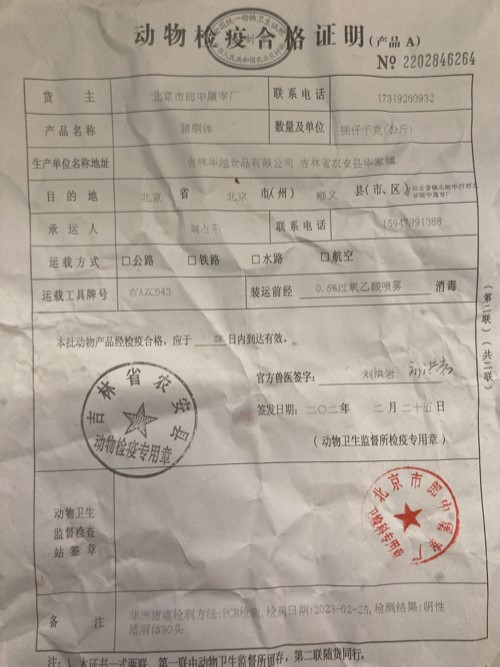 动物检疫合格证明(产品 A)
№ 2202846264
货 主 北京市郎中屠宰厂 联系电话 17319260932
产品名称 猪胴体 数量及单位 捌仟千克(公斤)
生产单位名称地址 吉林华越食品有限公司 吉林省农安县华家镇
目的地 北京 省 北京 市(州) 顺义 县(市、区)
承运人 刘占东 联系电话 15947991388
运载方式 □公路 □铁路 □水路 □航空
运载工具牌号 吉AZC943 装运前经 0.5%过氧乙酸喷雾 消毒
本批动物产品经检疫合格,应于 日内到达有效。
官方兽医签字: 刘洪岩
签发日期: 二〇二 年 二月二十五日
(动物卫生监督所检疫专用章)
吉林省农安县
动物检疫专用章
动物卫生
监督检查
站签章
北京市郎中屠宰厂
专用章
备 注 非洲猪瘟检测方法:PCB检测,检测日期:2023-02-25,检测结果:阴性
猪胴体90头
注:1.本证书一式两联,第一联由动物卫生监督所留存,第二联随货同行。
(第二联)(共二联)